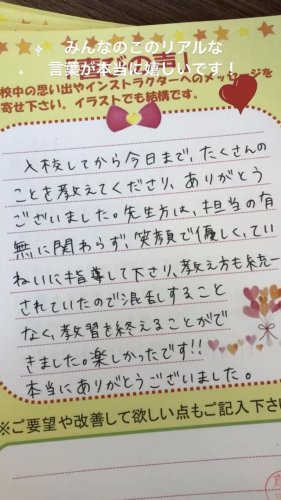 みんなのこのリアルな
言葉が本当に嬉しいです！
校中の思い出やインストラクターへのメッセージを
寄せ下さい。イラストでも結構です。
入校してから今日まで、たくさんの
ことを教えてくださり、ありがとう
ございました。先生方は、担当の有
無に関わらず、笑顔で優しく、てい
ねいに指導して下さり、教え方も統一
されていたので混乱すること
なく、教習を終えることがで
きました。楽しかったです!!
本当にありがとうございました。
※ご要望や改善して欲しい点もご記入下さ